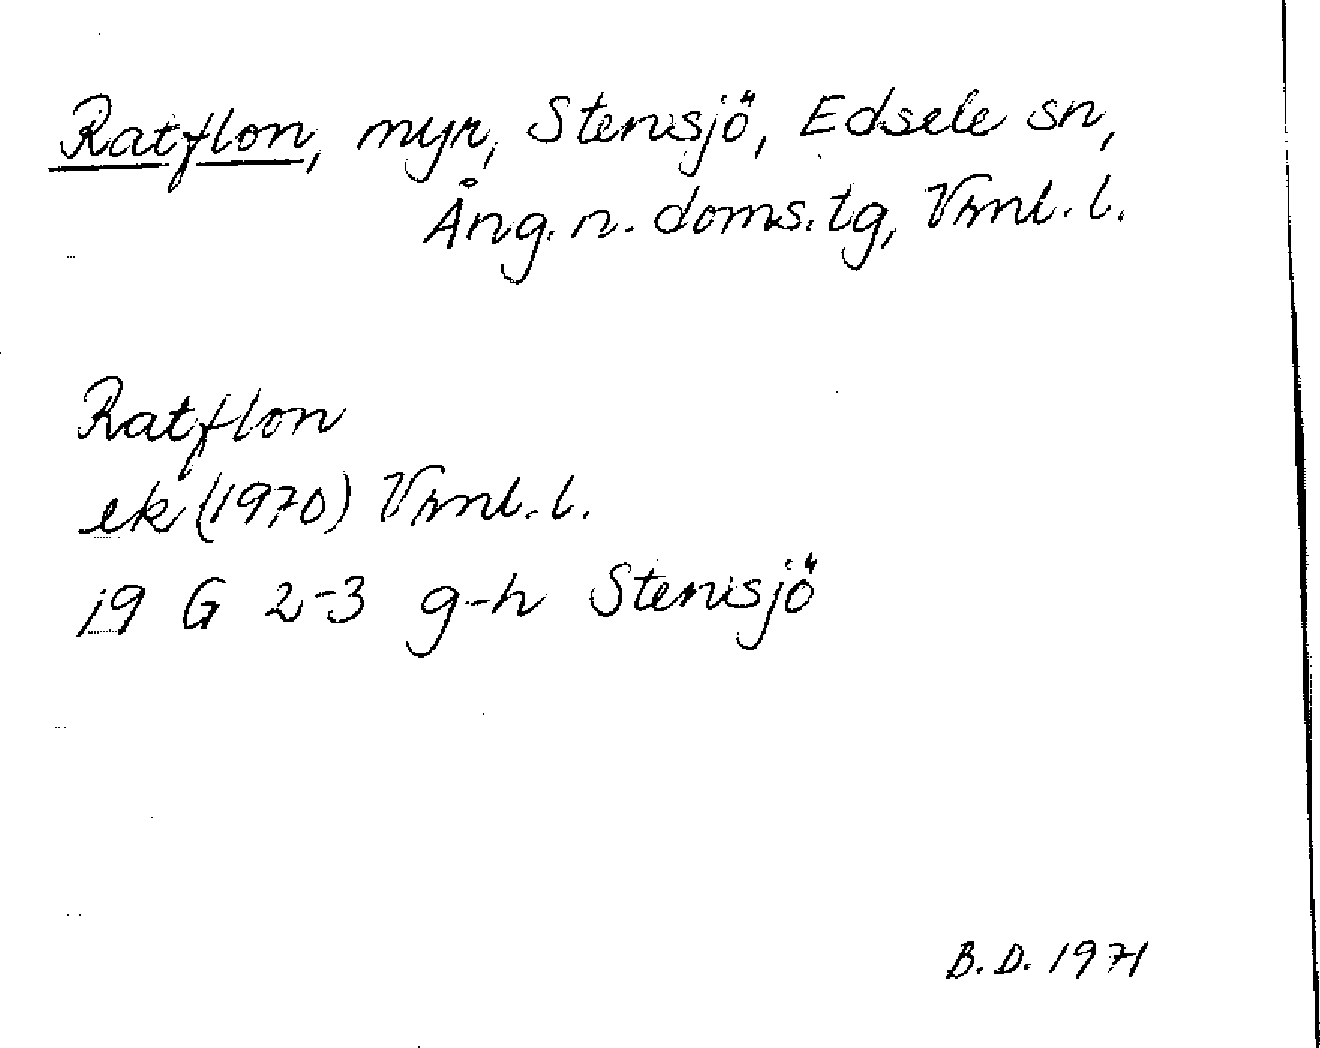 Ratflon, myr, Stensjö, Edsele sn,
Ång. n. doms. tg, Vrnl. l.
Ratflon
ek (1970) Vrnl. l.
19 G 2-3 g-h Stensjö
B. D. 1971